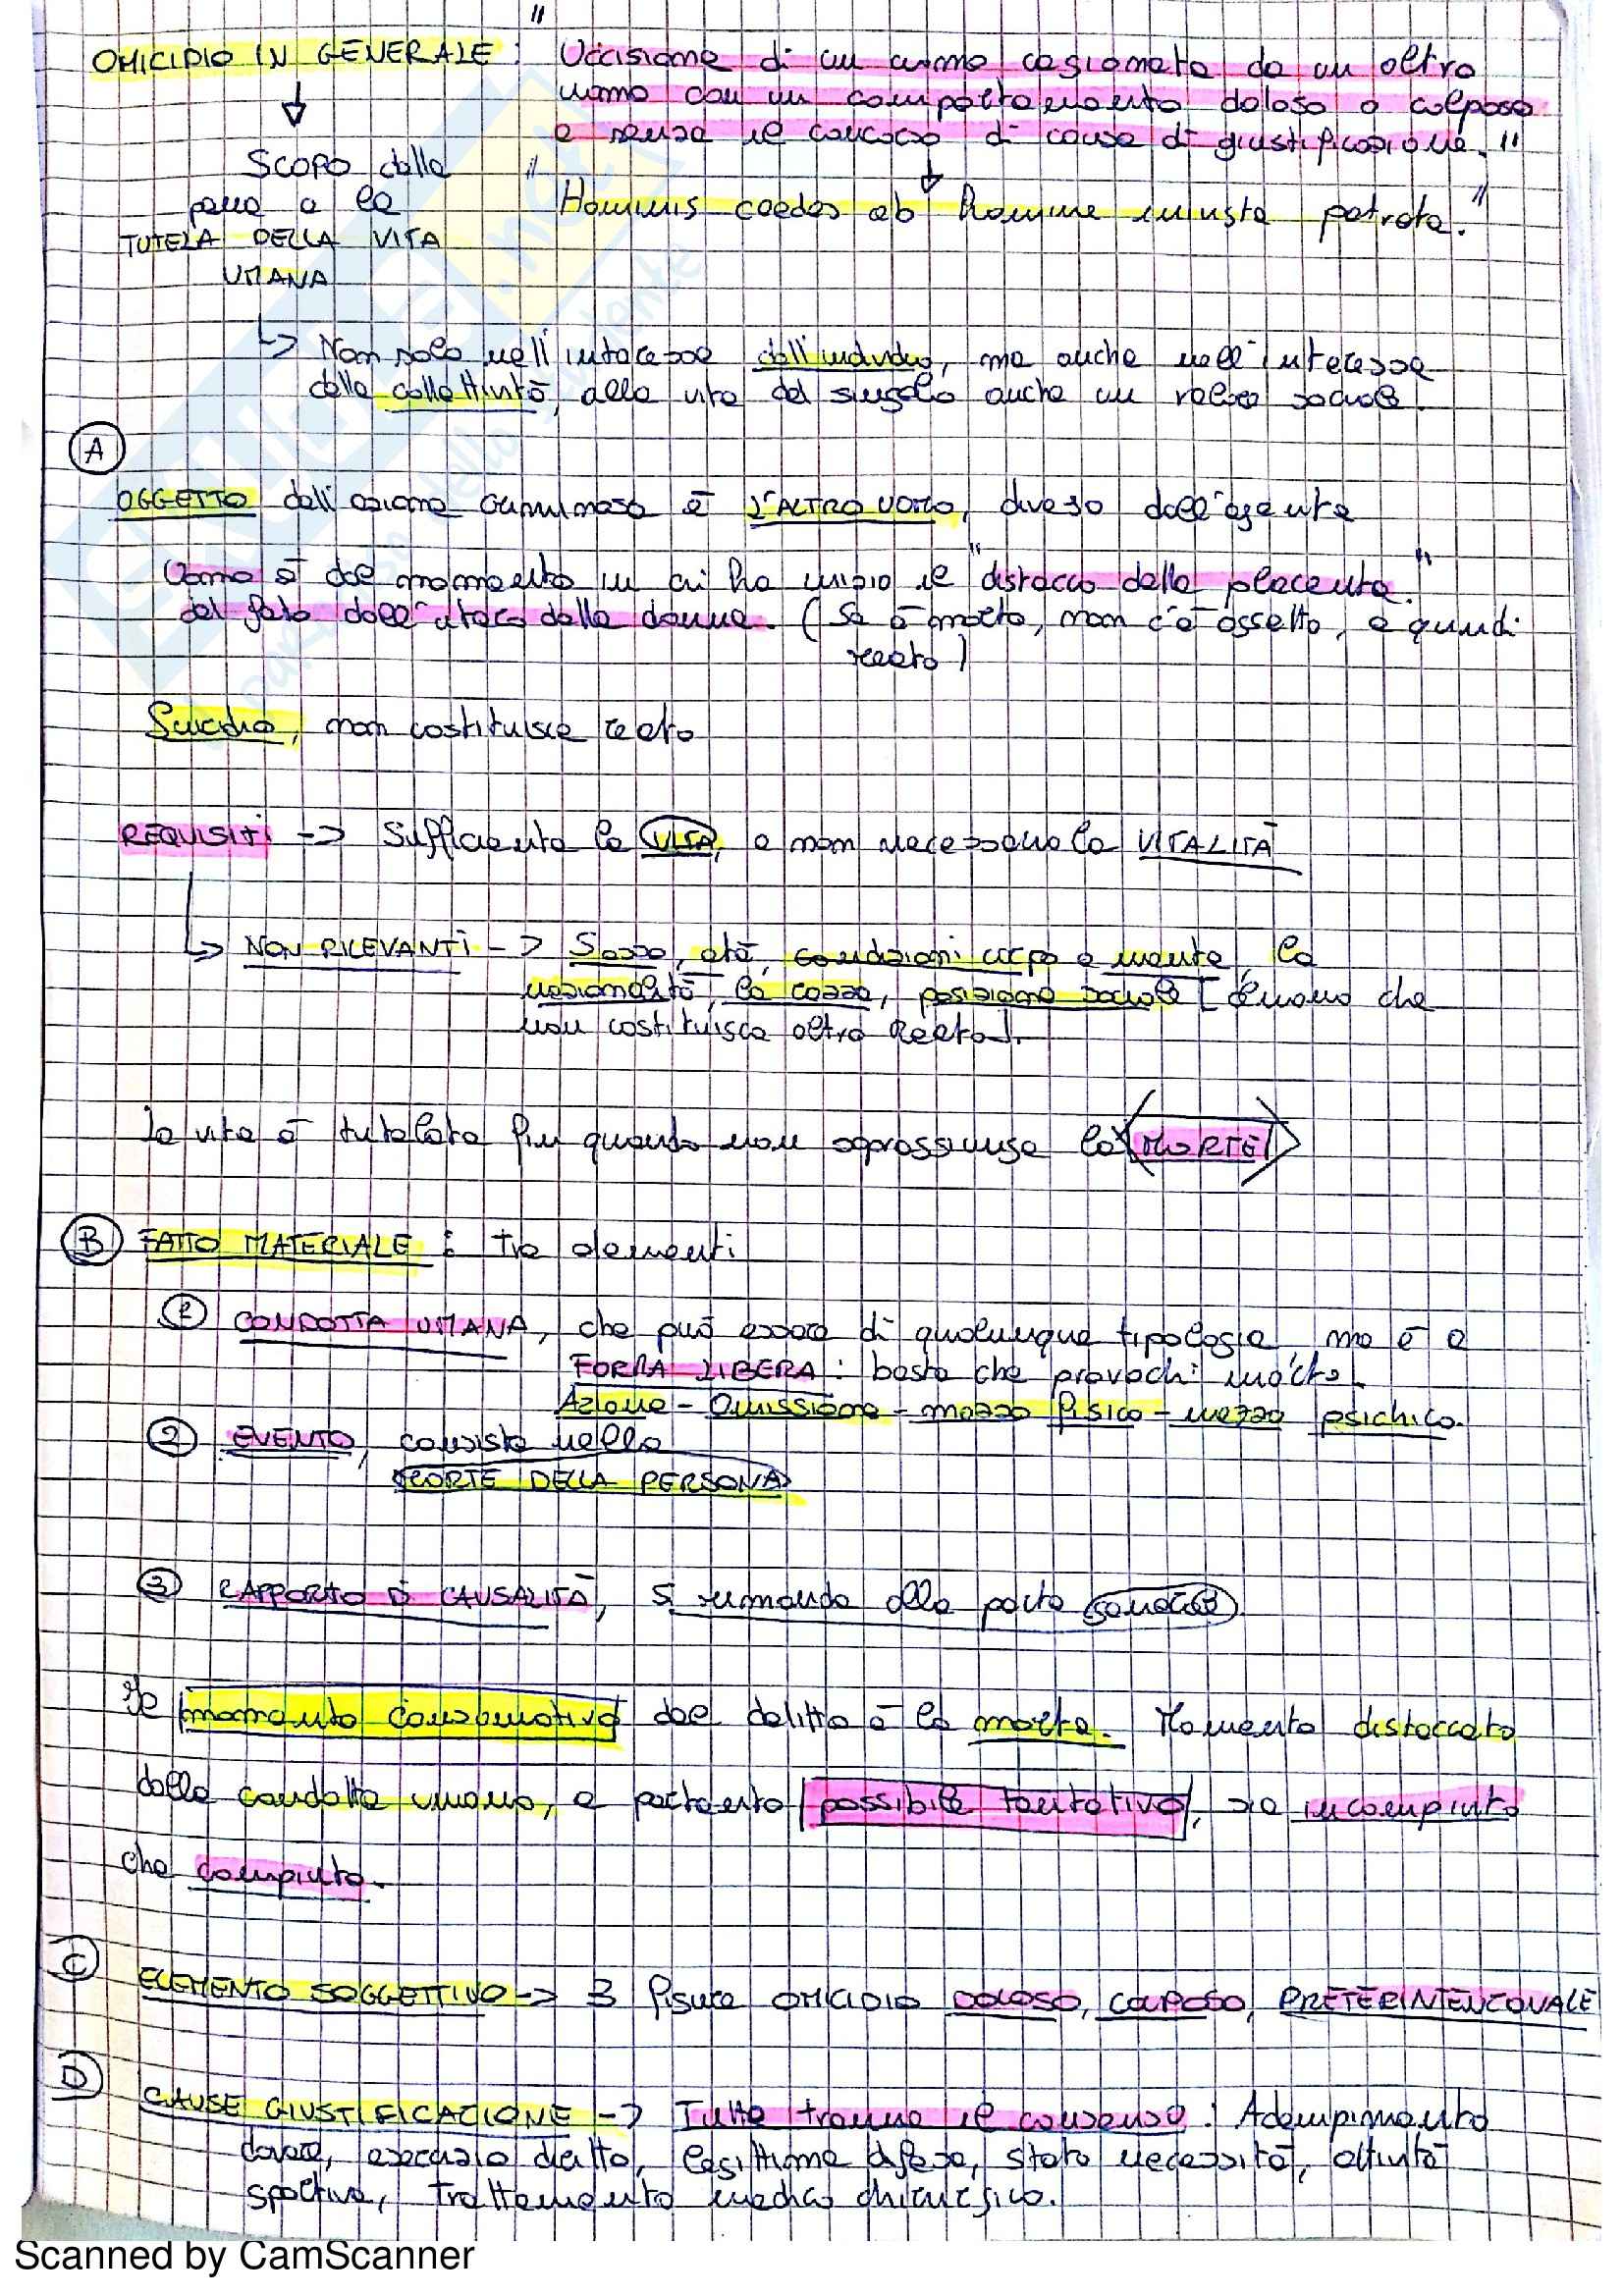 "
OMICIDIO IN GENERALE : Uccisione di un uomo cagionata da un altro
uomo con un comportamento doloso o colposo
e senza il concorso di cause di giustificazione. "
Scopo della
pena è la
TUTELA DELLA VITA
UMANA
" Hominis caedes ab homine iniuste patrata. "
↳ Non solo nell'interesse dell'individuo, ma anche nell'interesse
della collettività, alla vita del singolo anche un valore sociale.
A
OGGETTO dell'azione criminosa è L'ALTRO UOMO, diverso dall'agente
Uomo è dal momento in cui ha inizio il "distacco della placenta."
del feto dall'utero della donna. (Se è morto, non c'è oggetto, e quindi
reato)
Suicidio, non costituisce reato
REQUISITI -> Sufficiente la VITA, e non necessaria la VITALITÀ
↳ NON RILEVANTI -> Sesso, età, condizioni corpo e mente, la
nazionalità, la razza, posizione sociale [ che
non costituisca altro Reato].
La vita è tutelata fin quando non sopraggiunge la MORTE
B FATTO MATERIALE : tre elementi
1 CONDOTTA UMANA, che può essere di qualunque tipologia, ma è a
FORMA LIBERA : basta che provochi morte.
Azione - Omissione - mezzo fisico - mezzo psichico.
2 EVENTO, consiste nella
MORTE DELLA PERSONA
3 RAPPORTO DI CAUSALITÀ, si rimanda alla parte generale
Il momento consumativo del delitto è la morte. Momento distaccato
dalla condotta umana, e pertanto possibile tentativo, sia incompiuto
che compiuto.
C ELEMENTO SOGGETTIVO -> 3 figure OMICIDIO DOLOSO, COLPOSO, PRETERINTENZIONALE
D CAUSE GIUSTIFICAZIONE -> Tutte tranne il consenso : Adempimento
dovere, esercizio diritto, legittima difesa, stato necessità, attività
sportiva, trattamento medico chirurgico.
SKUOLA.net
Scanned by CamScanner